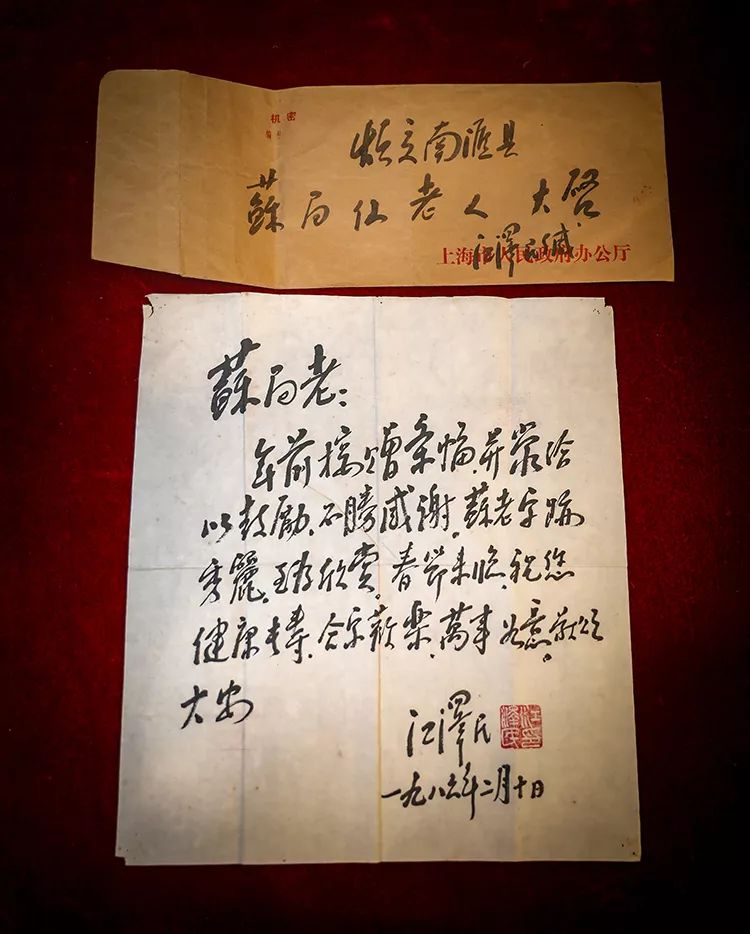 机密
烦交南匯县
蘇局仙老人 大啓
上海市人民政府办公厅
江澤民缄
蘇局老：
年前赠条幅，并蒙给
以鼓勵，不勝感谢。蘇老字跡
秀麗，至为欣赏。春節来临，祝您
健康长寿，合家歡樂，萬事如意。敬颂
大安
江澤民
一九八六年二月十日